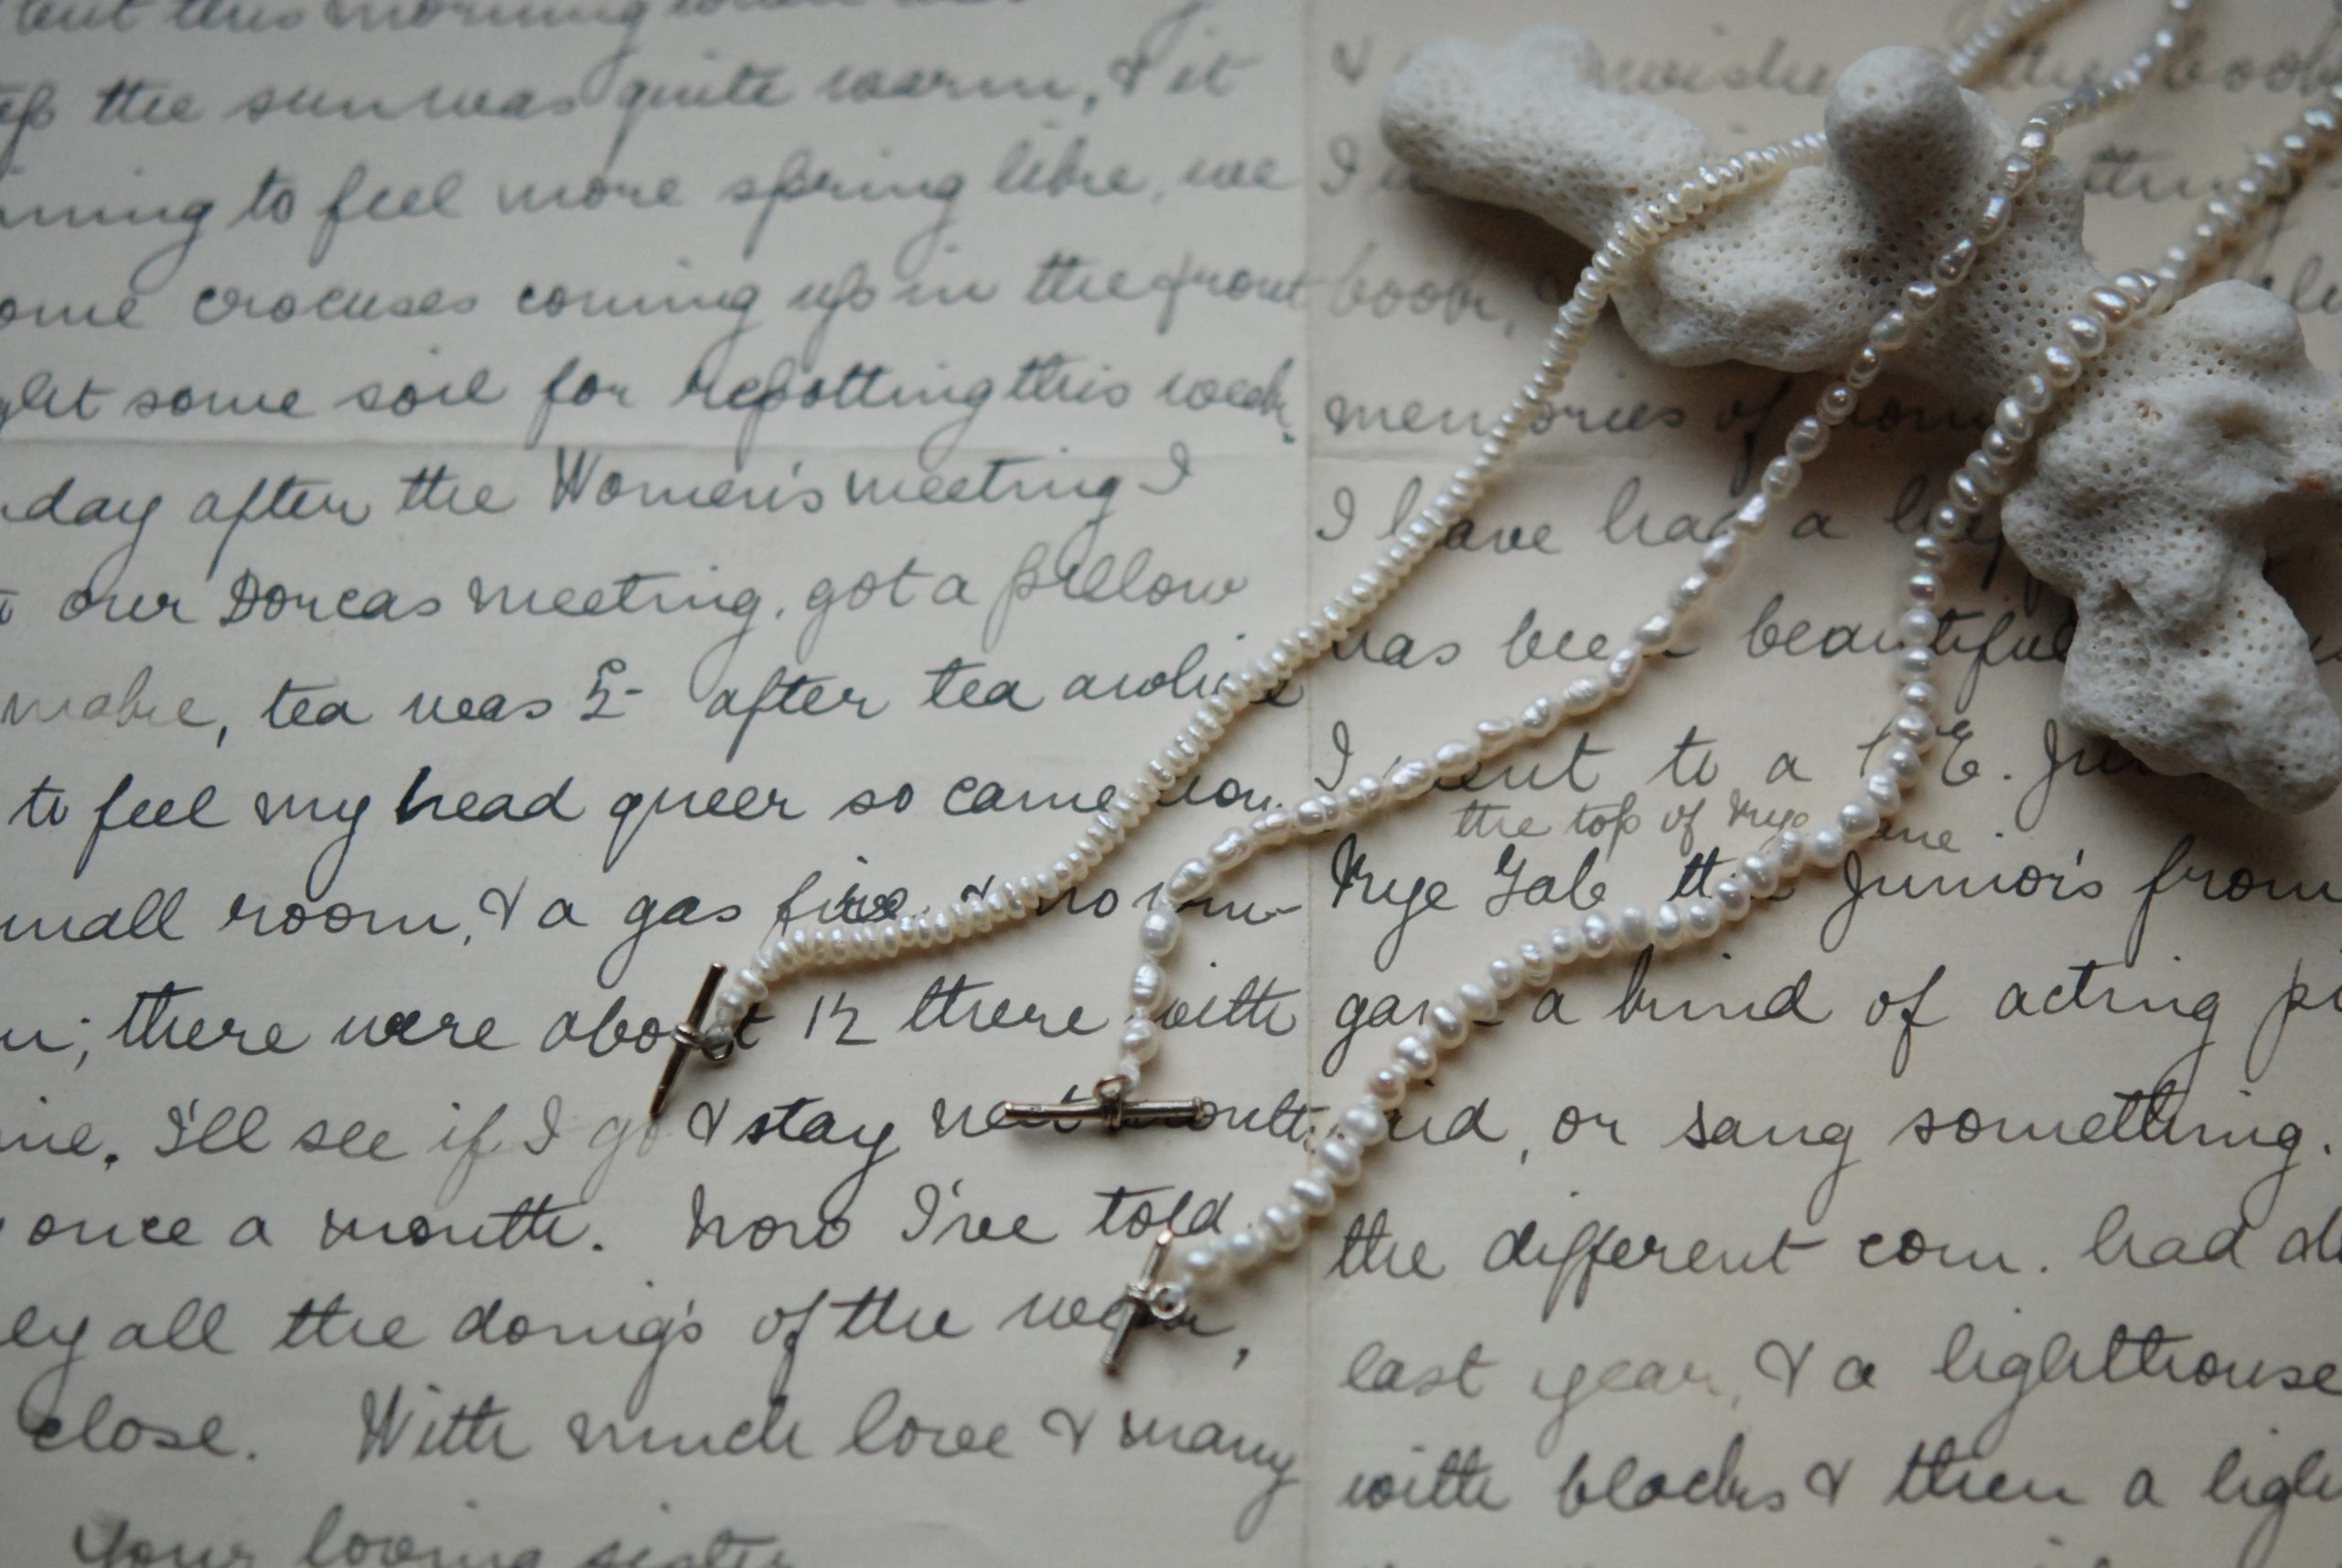 but this morning when
the sun was quite warm, & it
to feel more spring like, we
some crocuses coming up in the front
some soil for repotting this week.
day after the Women's meeting I
our Dorcas meeting. got a pillow
make, tea was 5- after tea
to feel my head queer so came
small room, & a gas fire, & no
; there were about 12 there with
I'll see if I go & stay next
once a month. Now I've told
all the doings of the week,
close. With much love & many
Your loving sister
& wishes the book
I
book,
memories of
I have had a
has been beautiful
I went to a C.E.
the top of Rye Lane.
Rye the Junior's from
gave a kind of acting
or sang something.
the different com. had
last year, & a lighthouse
with blocks & then a